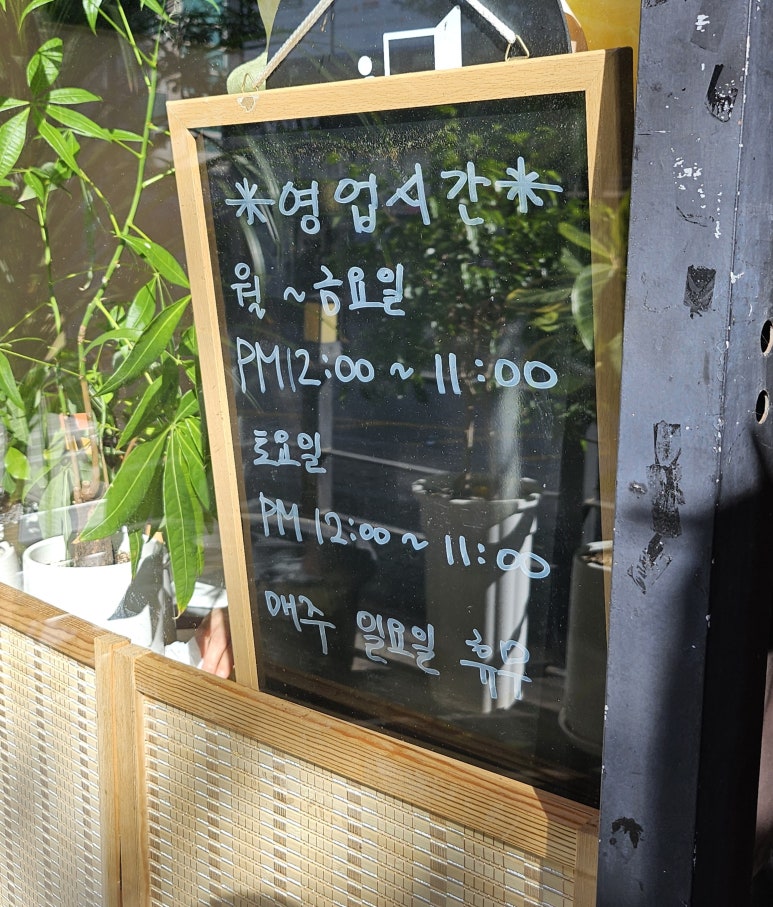 *영업시간*
월 ~ 금요일
PM 12:00 ~ 11:00
토요일
PM 12:00 ~ 11:00
매주 일요일 휴무